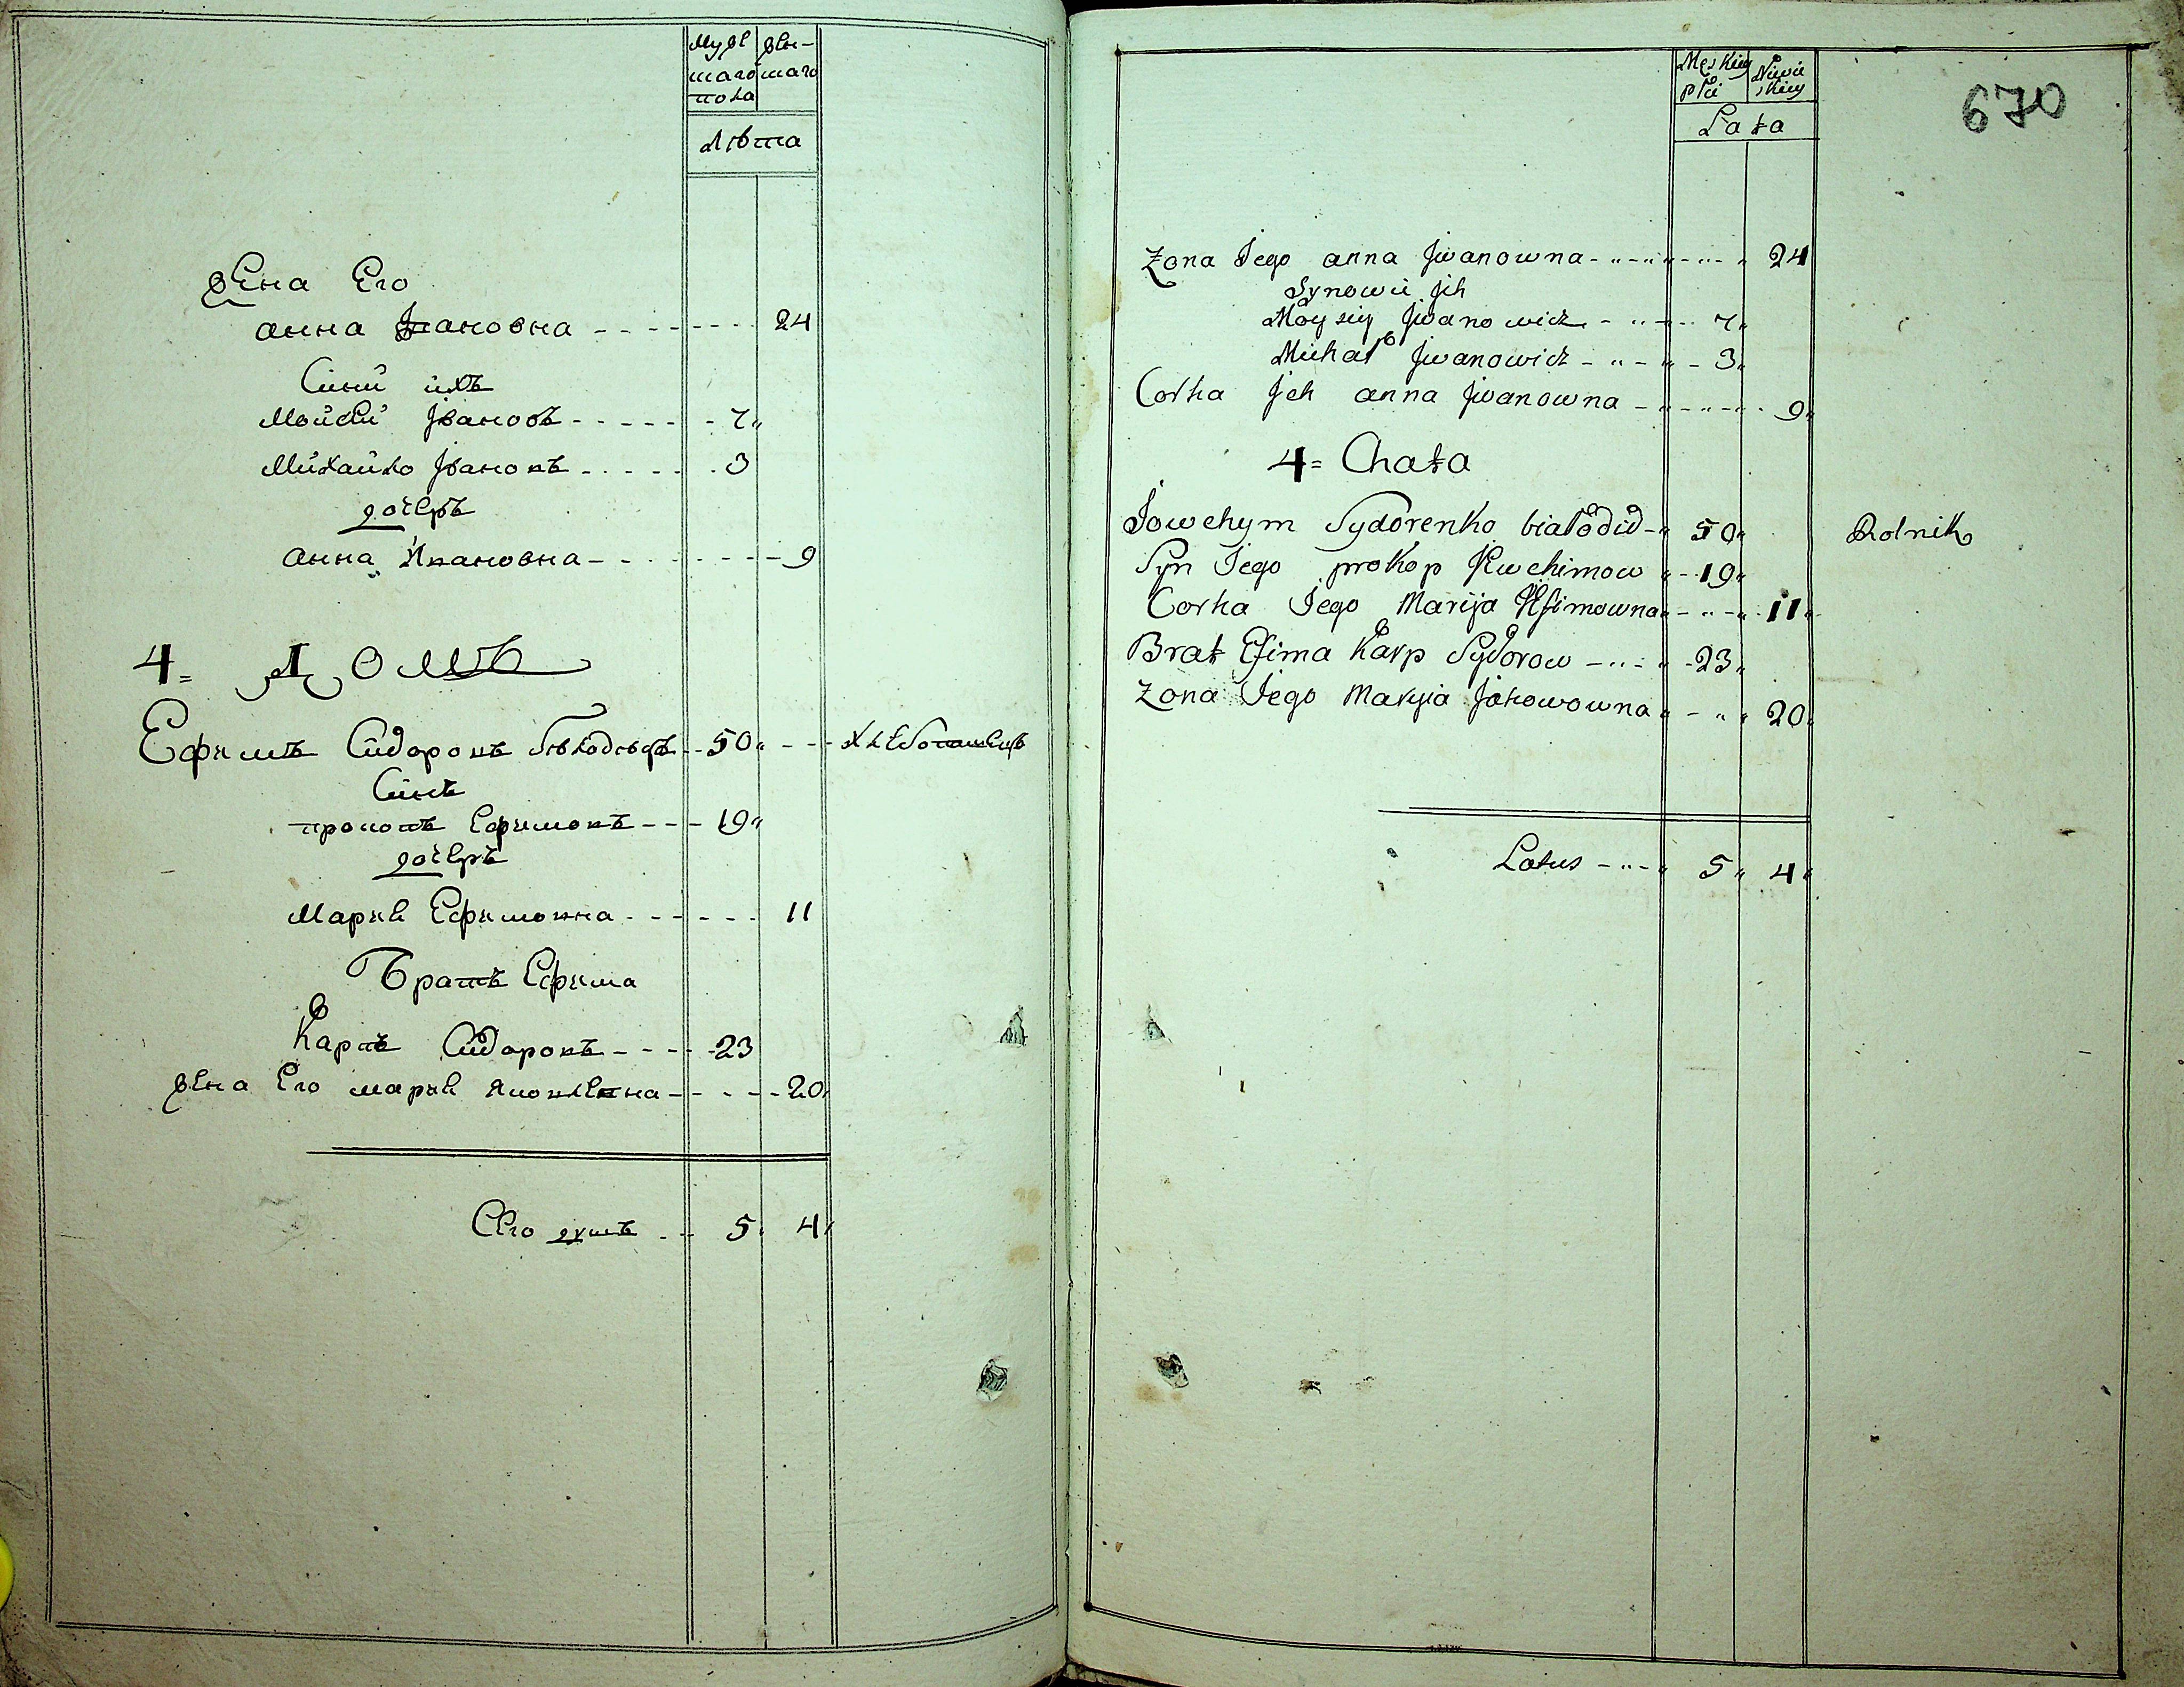 Мужеска го пола
женска го
Лѣта
Жена Его
анна Івановна 24
Сини ихъ
Мойсей Івановъ 7
Михайло Івановъ 3
дочерь
анна Ивановна 9
4= Домъ
Ефимъ Сидоровъ Бѣлодѣдъ 50 хлебопашецъ
Синъ
прокопъ Ефимовъ 19
дочерь
Марие Ефимовна 11
Братъ Ефима
Карпъ Сидоровъ 23
жена Его марие Яковлевна 20
Сего душъ 5 4
Męskiey płci
Niewieskiey
Lata
670
Żona Jego anna Jwanowna 24
Synowie Jch
Moysiey Jwanowicz 7
Michał Jwanowicz 3
Corka Jch anna Jwanowna 9
4= Chata
Jowchym Sydorenko białodid 50 Rolnik
Syn Jego prokop 19
Corka Jego Marija 11
Brat Efima Karp Sydorow 23
Zona Jego Maryia Jakowowna 20
Latus 5 4